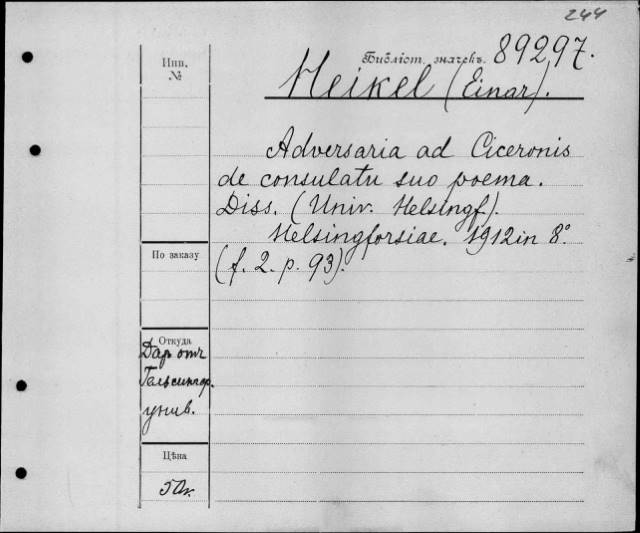 244
Библіот. значекъ. 89297.
Инв.
№
Heikel (Einar).
Adversaria ad Ciceronis
de consulatu suo poema.
Diss. (Univ. Helsingf).
Helsingforsiae. 1912 in 8°
(f. 2. p. 93).
По заказу
Откуда
Даръ отъ
Гельсингфор.
унив.
Цѣна